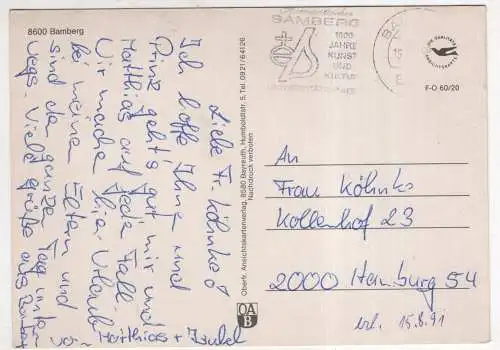 8600 Bamberg
Liebe Fr. Köhnke!
Ich hoffe Ihnen und
Prinz geht's gut, mir und
Matthias auf jede Fall.
Wir machen hier Urlaub
bei meinen Eltern und
sind den ganzen Tag unter-
wegs. Viele Grüße aus Bamberg
von Matthias +
Oberfr. Ansichtskartenverlag, 8580 Bayreuth, Humboldtstr. 5, Tel. 0921/64126
Nachdruck verboten
OA
B
BAMBERG
1000
JAHRE
KUNST
UND
KULTUR
F-O 60/20
An
Frau Köhnke
Kollenhof 23
2000 Hamburg 54
erh. 15.8.91